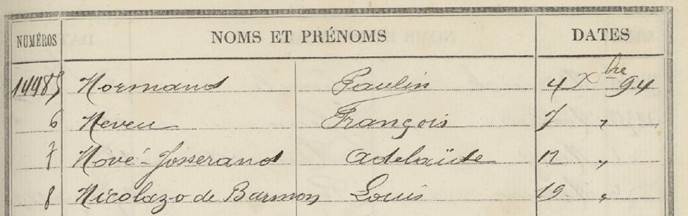 NUMÉROS NOMS ET PRÉNOMS DATES
14485 Normand Paulin 4 Xbre 94
6 Neveu François 7 "
7 Nové-Josserand Adelaïde 12 "
8 Nicolazo de Barmon Louis 19 "